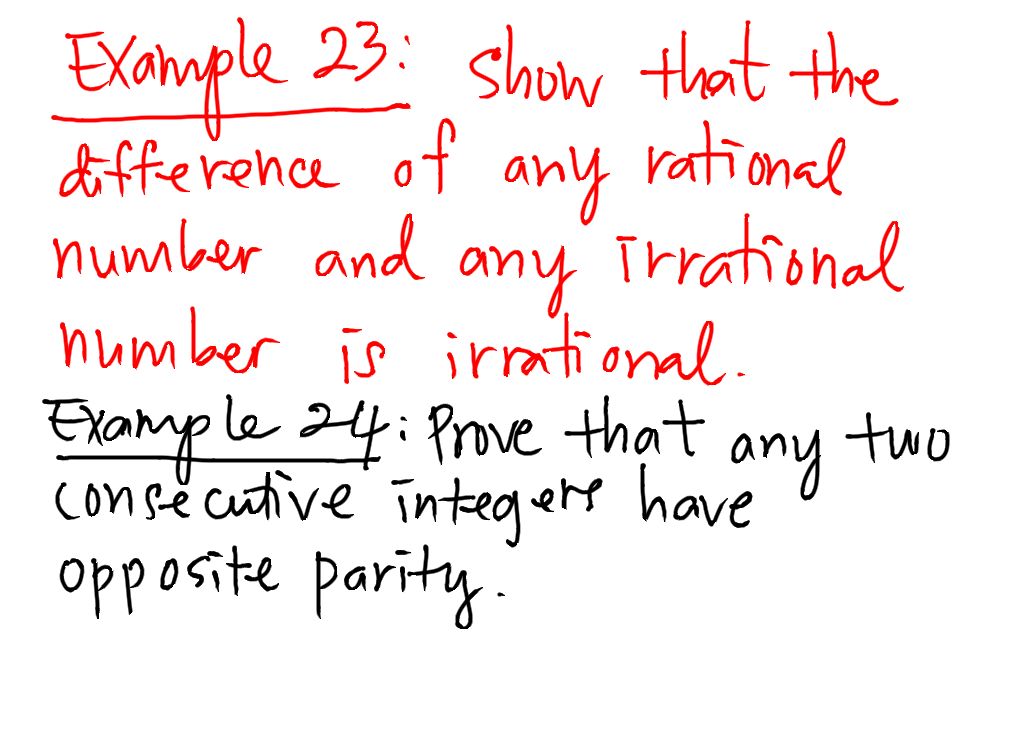 Example 23: Show that the
difference of any rational
number and any irrational
number is irrational.
Example 24: Prove that any two
consecutive integers have
opposite parity.